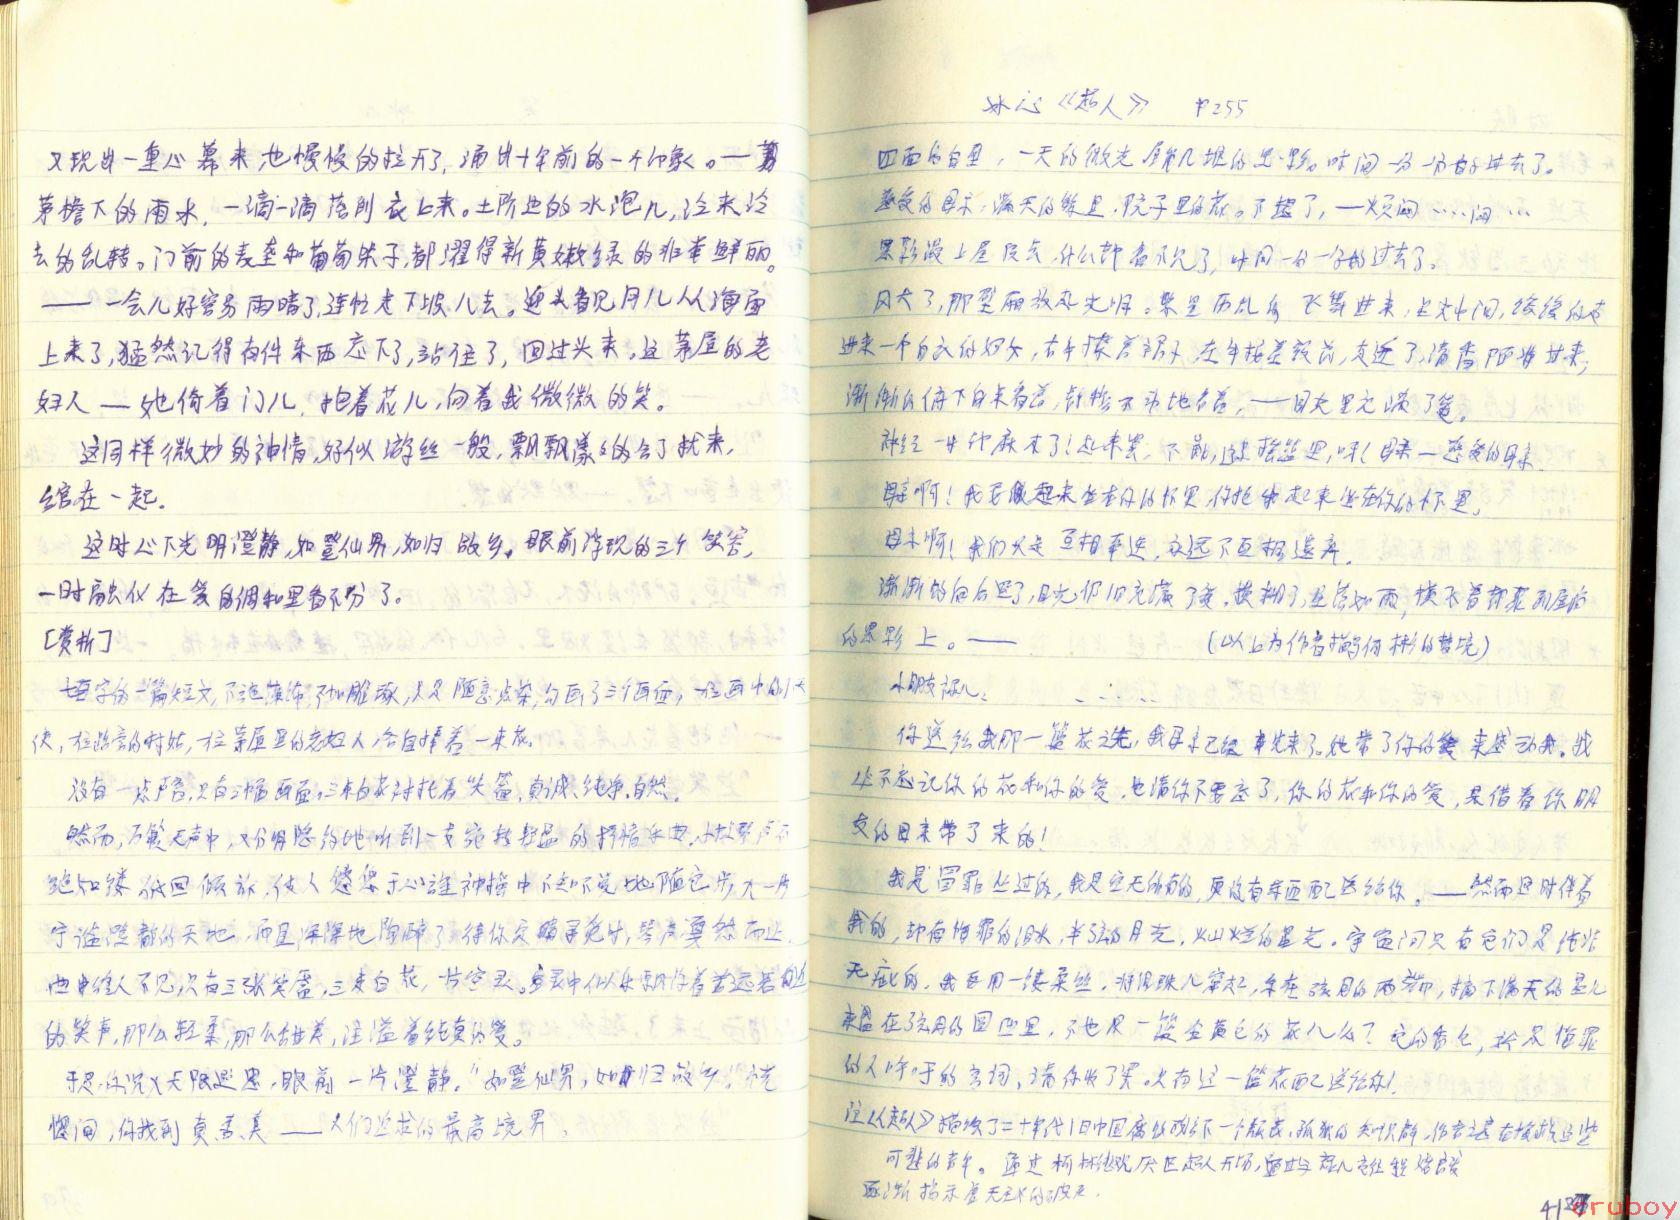 又现出一重心幕来,也慢慢的拉开了,涌出十年前的一个印象。—
茅檐下的雨水,一滴一滴落到衣上来。土阶边的水泡儿,泛来泛
去的乱转。门前的麦垄和葡萄架子,都濯得新黄嫩绿的非常鲜丽。
——一会儿好容易雨晴了,连忙走下坡儿去。迎头看见月儿从海面
上来了,猛然记得有件东西忘下了,站住了,回过头来。这茅屋的老
妇人——她倚着门儿,抱着花儿,向着我微微的笑。
这同样微妙的神情,好似游丝一般,飘飘漾漾的合了拢来,
绾在一起。
这时心下光明澄静,如登仙界,如归故乡。眼前浮现的三个笑容,
一时融化在爱的调和里看不分了。
[赏析]
字的一篇短文,不 不加雕琢,只是随意点染,勾画了三个画面,一位画中的小天
使,一位路旁的村姑,一位茅屋里的老妇人,各自捧着一束花。
没有一点声音,只有三幅画面,三束白花衬托着笑靥,真诚、纯净、自然。
然而,万籁无声中,又分明隐约地听到一支宛转轻盈的抒情乐曲,
低回倾诉,使人 心 神 中不知不觉地随它步入一片
宁谧 的天地,而且深深地陶醉了。待你定睛寻觅时,琴声戛然而止,
曲中佳人不见,只有三张笑靥,三束白花,一片空灵。空灵中似乎飘浮着若远若近
的笑声,那么轻柔,那么甜美,洋溢着纯真的爱。
于是,你沉入无限遐思,眼前一片澄静。"如登仙界,如归故乡。"恍
惚间,你找到真善美——人们追求的最高境界。
冰心《超人》 P255
四面的白壁,一天的微光,屋角几堆的黑影。时间一分一分的过去了。
慈爱的母亲,满天的繁星,院子里的花。不想了,——烦闷……闷……
黑影漫上屋顶去,什么都看不见了,时间一分一分的过去了。
风大了,那壁厢放起光明。繁星历乱的飞舞进来,星光中间,缓缓的走
进来一个白衣的妇女,右手撩着裙子,左手按着额前,走近了,清香随将过来;
渐渐的俯下身来看着,静穆不动地看着,——目光里充满了爱。
神经一时都麻木了!起来罢,不能,这是摇篮里,呀!母亲——慈爱的母亲。
母亲啊!我要起来坐在你的怀里,你抱我起来坐在你的怀里。
母亲啊!我们只是互相牵连,永远不互相遗弃。
渐渐的向后退了,目光仍旧充满了爱。模糊了,星落如雨,横飞着都聚到屋角
的黑影上。——
(以上为作者描写何彬的梦境)
小朋友禄儿:
……
你送给我那一篮花之先,我母亲已经 先来了。她带了你的爱来感动我。我
必不忘记你的花和你的爱,也请你不要忘了,你的花和你的爱,是借着你朋
友的母亲带了来的!
我是冒罪丛过的,我是空无所有的,更没有东西配送给你。——然而这时伴着
我的,却有悔罪的泪水,半弦的月光,灿烂的星光。宇宙间只有它们是纯洁
无疵的。我要用一缕柔丝,将泪珠儿穿起,系在弦月的两端,摘下满天的星儿
来盛在弦月的圆凹里,不也是一篮金黄色的花儿么?它的香气,就是悔罪
的人呼吁的言词,请你收了罢。只有这一篮花配送给你!
注《超人》描绘了二十年代旧中国 一个颓丧,孤独的知识 , 这些
可悲的青年。通过何彬
逐渐指示
4128
druboy